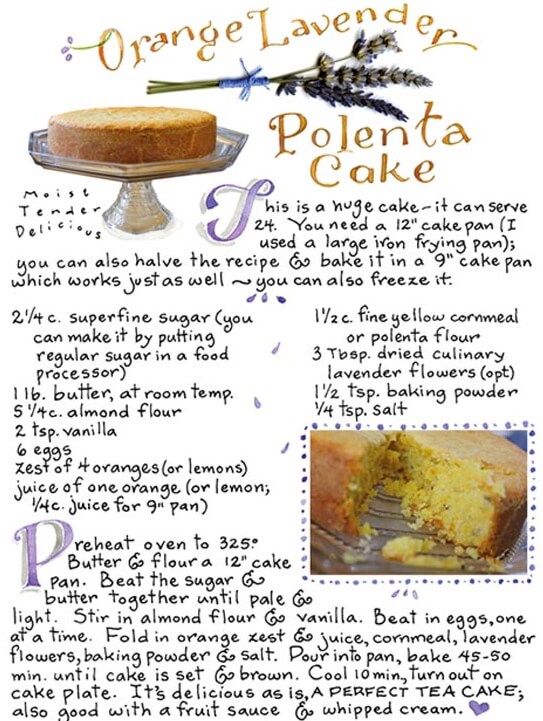 Orange Lavender
Polenta
Cake
Moist
Tender
Delicious
This is a huge cake – it can serve
24. You need a 12" cake pan (I
used a large iron frying pan);
you can also halve the recipe & bake it in a 9" cake pan
which works just as well ~ you can also freeze it.
2 1/4 c. superfine sugar (you
can make it by putting
regular sugar in a food
processor)
1 lb. butter, at room temp.
5 1/4 c. almond flour
2 tsp. vanilla
6 eggs
zest of 4 oranges (or lemons)
juice of one orange (or lemon;
1/4 c. juice for 9" pan)
1 1/2 c. fine yellow cornmeal
or polenta flour
3 Tbsp. dried culinary
lavender flowers (opt)
1 1/2 tsp. baking powder
1/4 tsp. salt
Preheat oven to 325°
Butter & flour a 12" cake
pan. Beat the sugar &
butter together until pale &
light. Stir in almond flour & vanilla. Beat in eggs, one
at a time. Fold in orange zest & juice, cornmeal, lavender
flowers, baking powder & salt. Pour into pan, bake 45-50
min. until cake is set & brown. Cool 10 min., turn out on
cake plate. It's delicious as is, A PERFECT TEA CAKE;
also good with a fruit sauce & whipped cream.